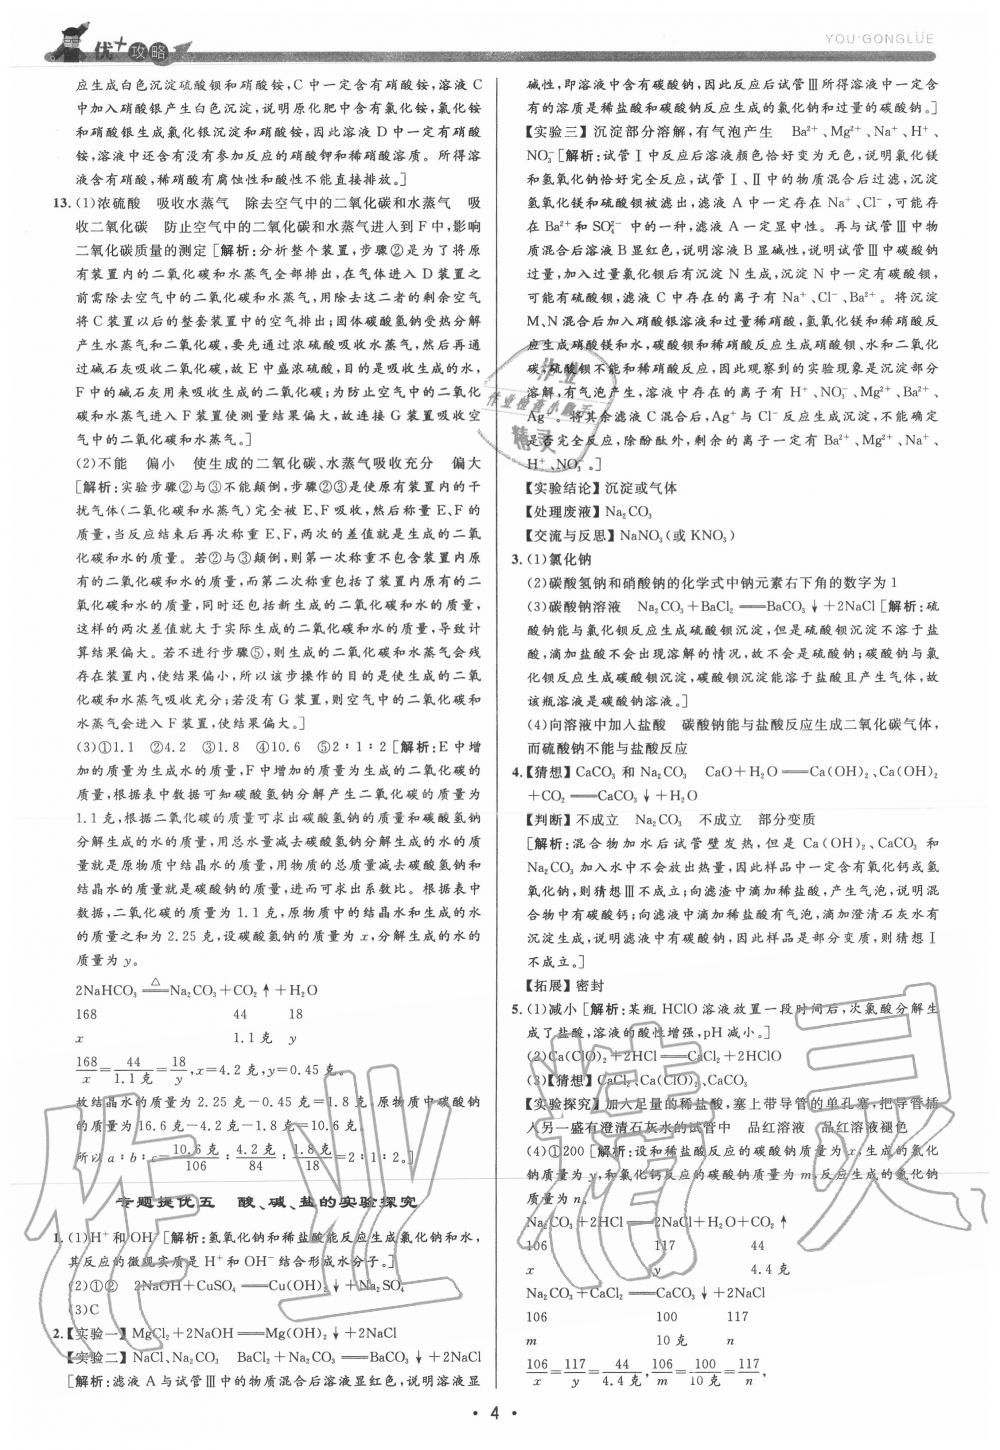 优+攻略
YOU+GONGLÜE
应生成白色沉淀硫酸钡和硝酸铵,C中一定含有硝酸铵,溶液C
中加入硝酸银产生白色沉淀,说明原化肥中含有氯化铵,氯化铵
和硝酸银生成氯化银沉淀和硝酸铵,因此溶液D中一定有硝酸
铵,溶液中还含有没有参加反应的硝酸钾和稀硝酸溶质。所得溶
液含有硝酸,稀硝酸有腐蚀性和酸性不能直接排放。]
13. (1)浓硫酸 吸收水蒸气 除去空气中的二氧化碳和水蒸气 吸
收二氧化碳 防止空气中的二氧化碳和水蒸气进入到F中,影响
二氧化碳质量的测定[解析:分析整个装置,步骤②是为了将原
有装置内的二氧化碳和水蒸气全部排出,在气体进入D装置之
前需除去空气中的二氧化碳和水蒸气,用除去这二者的剩余空气
将C装置以后的整套装置中的空气排出;固体碳酸氢钠受热分解
产生水蒸气和二氧化碳,要先通过浓硫酸吸收水蒸气,然后再通
过碱石灰吸收二氧化碳,故E中盛浓硫酸,目的是吸收生成的水,
F中的碱石灰用来吸收生成的二氧化碳;为防止空气中的二氧化
碳和水蒸气进入F装置使测量结果偏大,故连接G装置吸收空
气中的二氧化碳和水蒸气。]
(2)不能 偏小 使生成的二氧化碳、水蒸气吸收充分 偏大
[解析:实验步骤②与③不能颠倒,步骤②③是使原有装置内的干
扰气体(二氧化碳和水蒸气)完全被E、F吸收,然后称量E、F的
质量,当反应结束后再次称重E、F,两次的差值就是生成的二氧
化碳和水的质量。若②与③颠倒,则第一次称重不包含装置内原
有的二氧化碳和水的质量,而第二次称重包括了装置内原有的二
氧化碳和水的质量,同时还包括新生成的二氧化碳和水的质量,
这样的两次差值就大于实际生成的二氧化碳和水的质量,导致计
算结果偏大。若不进行步骤⑤,则生成的二氧化碳和水蒸气会残
存在装置内,使结果偏小,所以该步操作的目的是使生成的二氧
化碳和水蒸气吸收充分;若没有G装置,则空气中的二氧化碳和
水蒸气会进入F装置,使结果偏大。]
(3)①1.1 ②4.2 ③1.8 ④10.6 ⑤2∶1∶2[解析:E中增
加的质量为生成水的质量,F中增加的质量为生成的二氧化碳的
质量,根据表中数据可知碳酸氢钠分解产生二氧化碳的质量为
1.1克,根据二氧化碳的质量可求出碳酸氢钠的质量和碳酸氢钠
分解生成的水的质量,用总水量减去碳酸氢钠分解生成的水的质
量就是原物质中结晶水的质量,用物质的总质量减去碳酸氢钠和
结晶水的质量就是碳酸钠的质量,进而可求出系数比。根据表中
数据,二氧化碳的质量为1.1克,原物质中的结晶水和生成的水
的质量之和为2.25克,设碳酸氢钠的质量为x,分解生成的水的
质量为y。
2NaHCO₃ ≜ Na₂CO₃+CO₂↑+H₂O
168 44 18
x 1.1克 y
168/x=44/1.1克=18/y,x=4.2克,y=0.45克。
故结晶水的质量为2.25克-0.45克=1.8克。原物质中碳酸钠
的质量为16.6克-4.2克-1.8克=10.6克。
所以a∶b∶c=10.6克/106∶4.2克/84∶1.8克/18=2∶1∶2。]
专题提优五 酸、碱、盐的实验探究
1. (1)H⁺和OH⁻[解析:氢氧化钠和稀盐酸能反应生成氯化钠和水,
其反应的微观实质是H⁺和OH⁻结合形成水分子。]
(2)①② 2NaOH+CuSO₄══Cu(OH)₂↓+Na₂SO₄
(3)C
2. 【实验一】MgCl₂+2NaOH══Mg(OH)₂↓+2NaCl
【实验二】NaCl、Na₂CO₃ BaCl₂+Na₂CO₃══BaCO₃↓+2NaCl
[解析:滤液A与试管Ⅲ中的物质混合后溶液显红色,说明溶液显
碱性,即溶液中含有碳酸钠,因此反应后试管Ⅲ所得溶液中一定含
有的溶质是稀盐酸和碳酸钠反应生成的氯化钠和过量的碳酸钠。]
【实验三】沉淀部分溶解,有气泡产生 Ba²⁺、Mg²⁺、Na⁺、H⁺、
NO₃⁻[解析:试管Ⅰ中反应后溶液颜色恰好变为无色,说明氯化镁
和氢氧化钠恰好完全反应,试管Ⅰ、Ⅱ中的物质混合后过滤,沉淀
氢氧化镁和硫酸钡被滤出,滤液A中一定存在Na⁺、Cl⁻,可能存
在Ba²⁺和SO₄²⁻中的一种,滤液A一定显中性。再与试管Ⅲ中物
质混合后溶液B显红色,说明溶液B显碱性,说明试管Ⅲ中碳酸钠
过量,加入过量氯化钡后有沉淀N生成,沉淀N中一定有碳酸钡,
可能有硫酸钡,滤液C中存在的离子有Na⁺、Cl⁻、Ba²⁺。将沉淀
M、N混合后加入硝酸银溶液和过量稀硝酸,氢氧化镁和稀硝酸反
应生成硝酸镁和水,碳酸钡和稀硝酸反应生成硝酸钡、水和二氧化
碳,硫酸钡不能和稀硝酸反应,因此观察到的实验现象是沉淀部分
溶解,有气泡产生,溶液中存在的离子有H⁺、NO₃⁻、Mg²⁺、Ba²⁺、
Ag⁺。将其余滤液C混合后,Ag⁺与Cl⁻反应生成沉淀,不能确定
是否完全反应,除酚酞外,剩余的离子一定有Ba²⁺、Mg²⁺、Na⁺、
H⁺、NO₃⁻。]
【实验结论】沉淀或气体
【处理废液】Na₂CO₃
【交流与反思】NaNO₃(或KNO₃)
3. (1)氯化钠
(2)碳酸氢钠和硝酸钠的化学式中钠元素右下角的数字为1
(3)碳酸钠溶液 Na₂CO₃+BaCl₂══BaCO₃↓+2NaCl[解析:硫
酸钠能与氯化钡反应生成硫酸钡沉淀,但是硫酸钡沉淀不溶于盐
酸,滴加盐酸不会出现溶解的情况,故不会是硫酸钠;碳酸钠与氯
化钡反应生成碳酸钡沉淀,碳酸钡沉淀能溶于盐酸且产生气体,故
该瓶溶液是碳酸钠溶液。]
(4)向溶液中加入盐酸 碳酸钠能与盐酸反应生成二氧化碳气体,
而硫酸钠不能与盐酸反应
4. 【猜想】CaCO₃和Na₂CO₃ CaO+H₂O══Ca(OH)₂、Ca(OH)₂
+CO₂══CaCO₃↓+H₂O
【判断】不成立 Na₂CO₃ 不成立 部分变质
[解析:混合物加水后试管壁发热,但是Ca(OH)₂、CaCO₃和
Na₂CO₃加入水中不会放出热量,因此样品中一定含有氧化钙或氢
氧化钠,则猜想Ⅲ不成立;向滤渣中滴加稀盐酸,产生气泡,说明混
合物中有碳酸钙;向滤液中滴加稀盐酸有气泡,滴加澄清石灰水有
沉淀生成,说明滤液中有碳酸钠,因此样品是部分变质,则猜想Ⅰ
不成立。]
【拓展】密封
5. (1)减小[解析:某瓶HClO溶液放置一段时间后,次氯酸分解生
成了盐酸,溶液的酸性增强,pH减小。]
(2)Ca(ClO)₂+2HCl══CaCl₂+2HClO
(3)【猜想】CaCl₂、Ca(ClO)₂、CaCO₃
【实验探究】加入足量的稀盐酸,塞上带导管的单孔塞,把导管插
入另一盛有澄清石灰水的试管中 品红溶液 品红溶液褪色
(4)①200[解析:设和稀盐酸反应的碳酸钠质量为x,生成的氯化
钠质量为y,和氯化钙反应的碳酸钠质量为m,反应生成的氯化钠
质量为n。
Na₂CO₃+2HCl══2NaCl+H₂O+CO₂↑
106 117 44
x y 4.4克
Na₂CO₃+CaCl₂══CaCO₃↓+2NaCl
106 100 117
m 10克 n
106/x=117/y=44/4.4克,106/m=100/10克=117/n,
• 4 •
作业
作业检查小助手
精灵
作业精灵